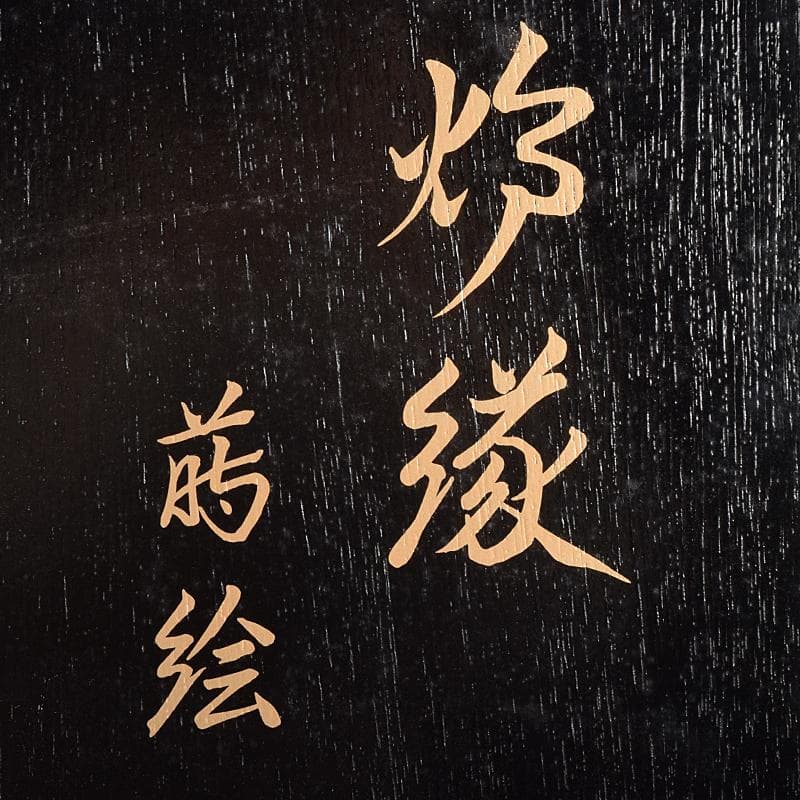 炉縁
蒔絵